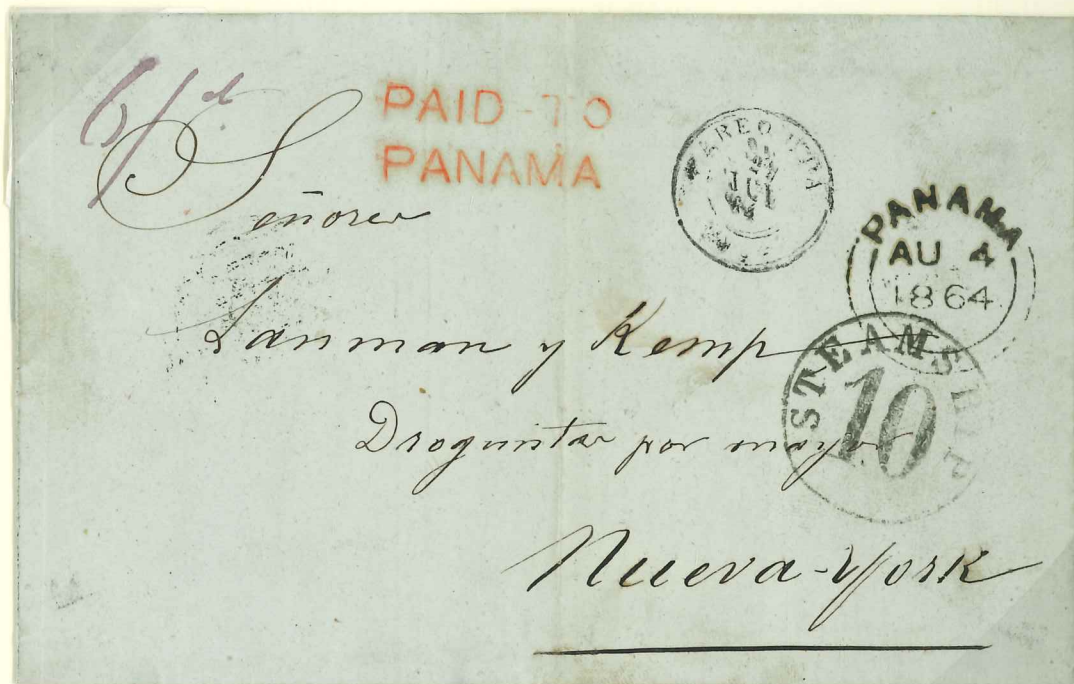 PAID-TO
PANAMA
AREQUIPA
PANAMA
AU 4
1864
STEAMSHIP
10
Señores
Lanman y Kemp
Droguistas por mayor
Nueva-York